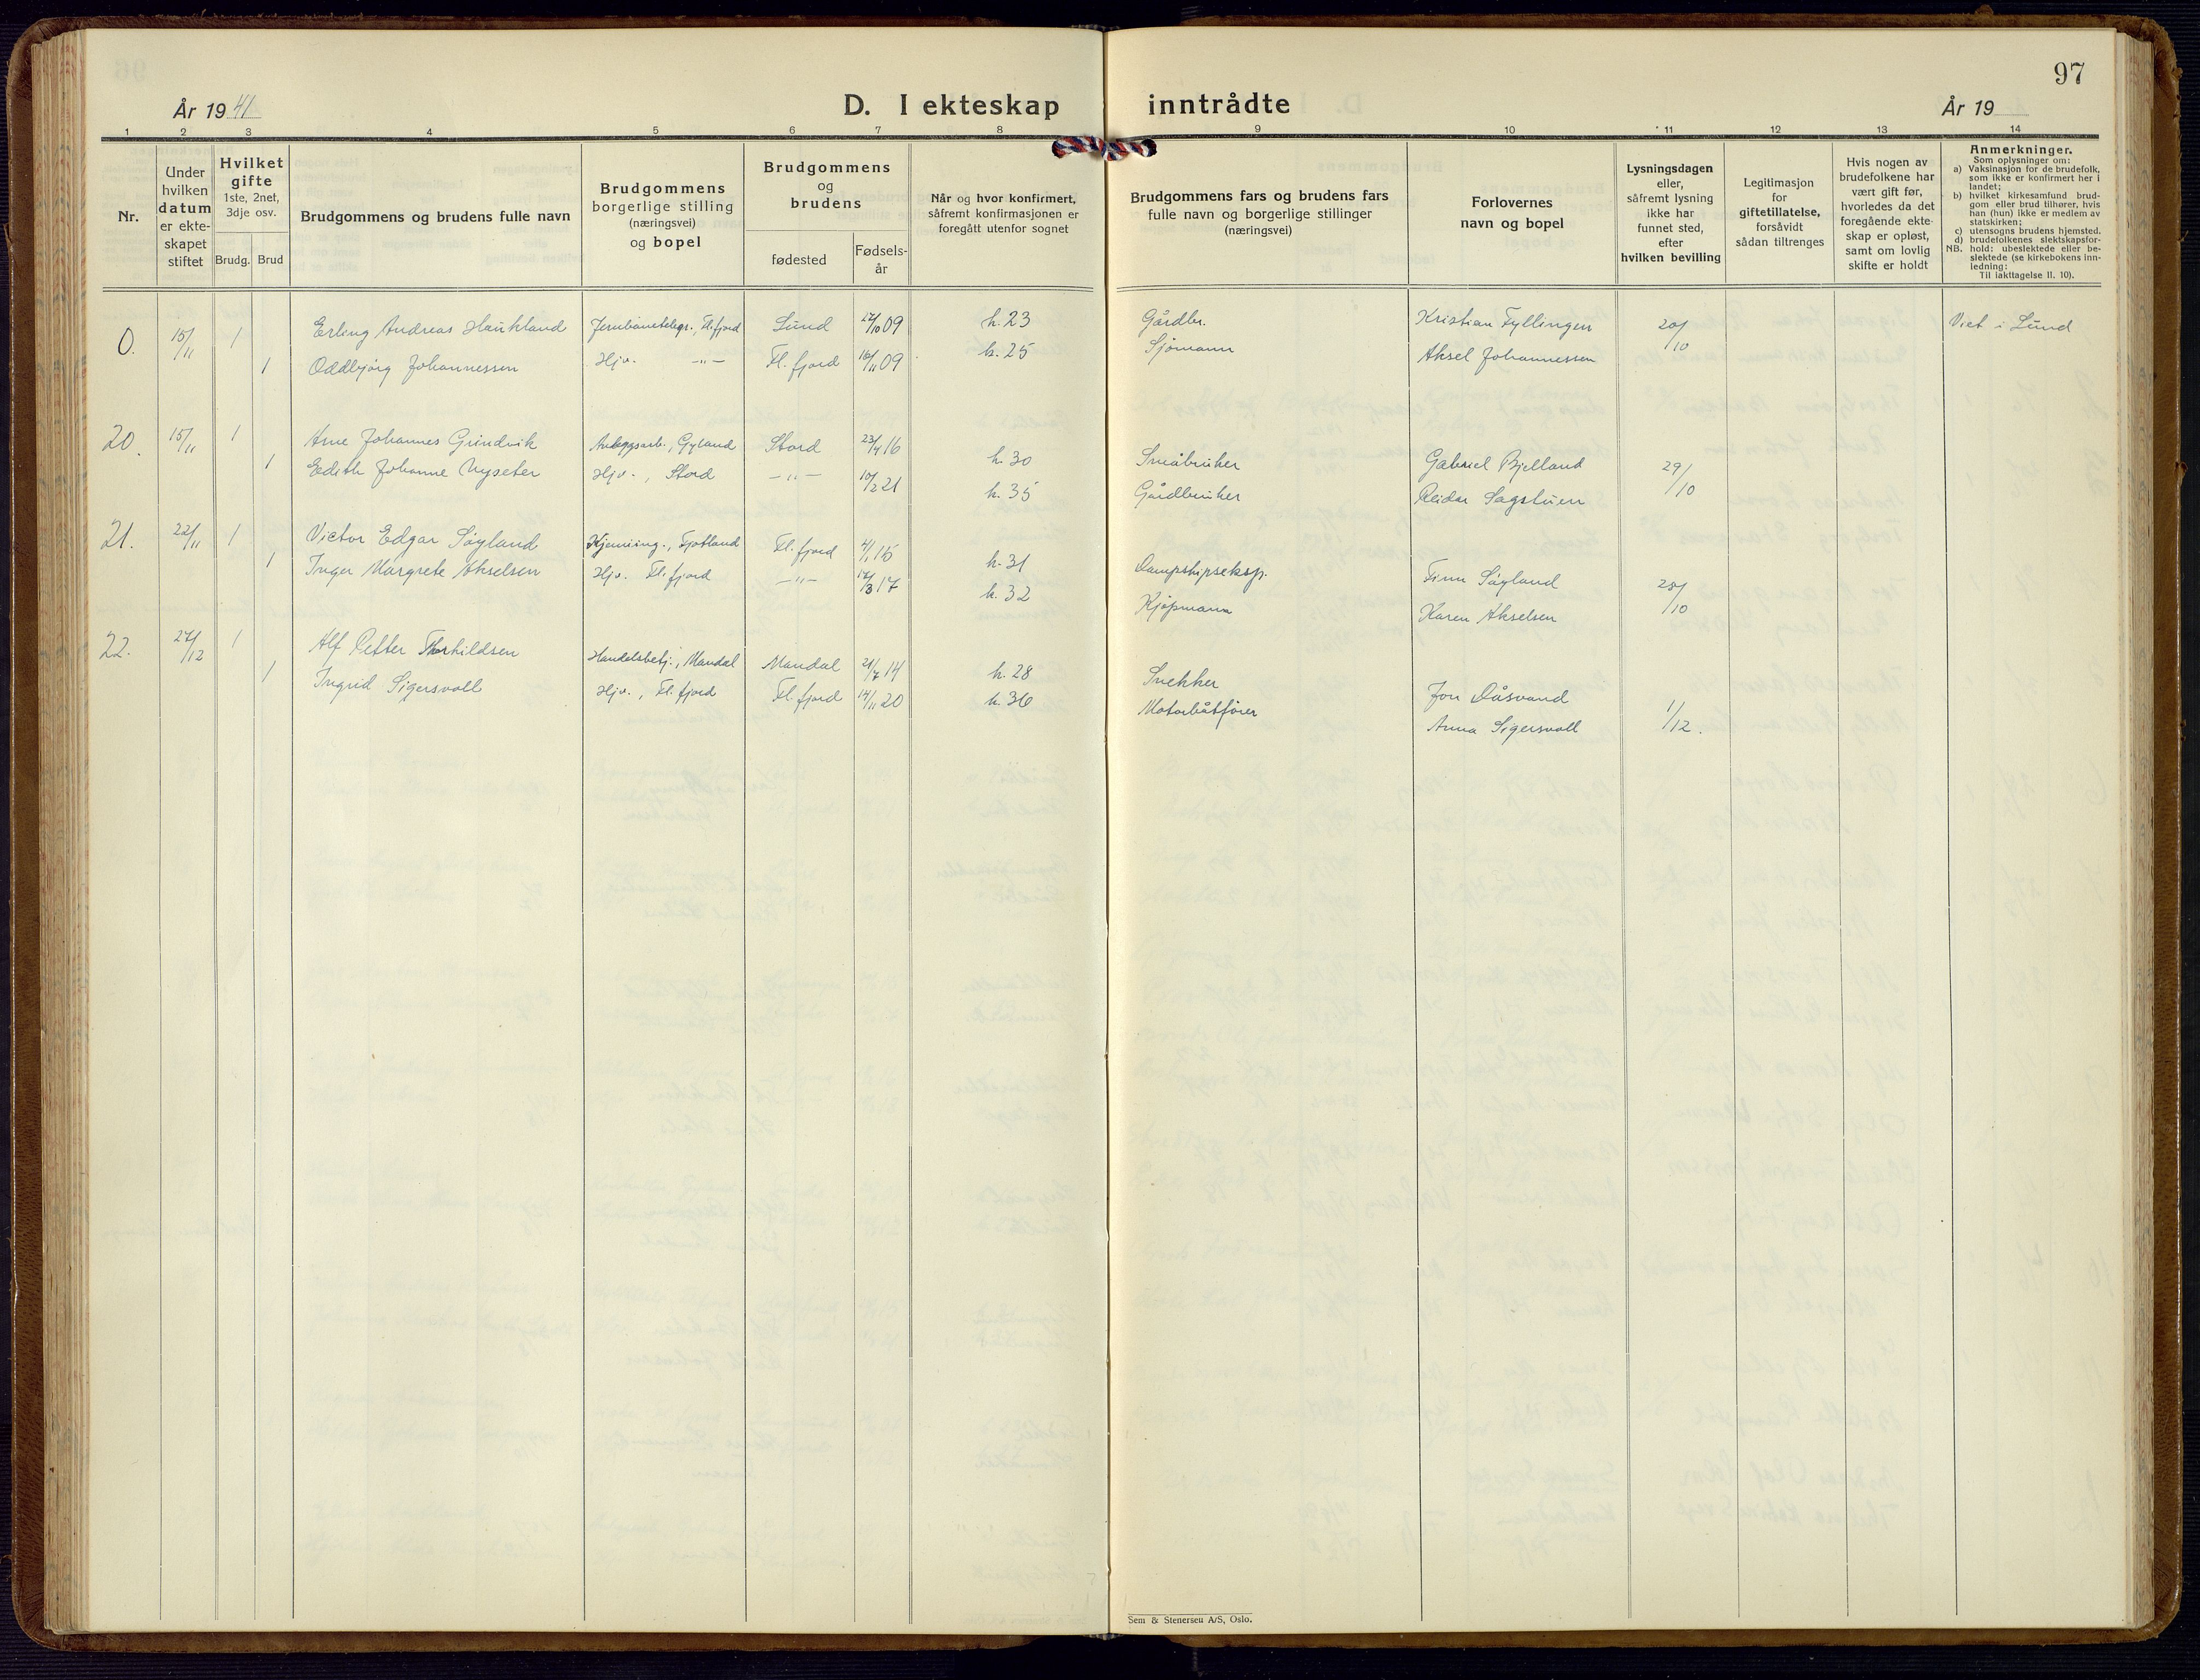 97
År 1941
D. I ekteskap inntrådte
År 19
1 2 3 4 5 6 7 8 9 10 11 12 13 14
Nr.
Under hvilken datum er ekte- skapet stiftet
Hvilket gifte 1ste, 2net, 3dje osv.
Brudg. Brud
Brudgommens og brudens fulle navn
Brudgommens borgerlige stilling (næringsvei) og bopel
Brudgommens og brudens
fødested
Fødsels- år
Når og hvor konfirmert, såfremt konfirmasjonen er foregått utenfor sognet
Brudgommens fars og brudens fars fulle navn og borgerlige stillinger (næringsvei)
Forlovernes navn og bopel
Lysningsdagen eller, såfremt lysning ikke har funnet sted, efter hvilken bevilling
Legitimasjon for giftetillatelse, forsåvidt sådan tiltrenges
Hvis nogen av brudefolkene har vært gift før, hvorledes da det foregående ekte- skap er opløst, samt om lovlig skifte er holdt
Anmerkninger.
Som oplysninger om:
a) Vaksinasjon for de brudefolk, som ikke er konfirmert her i landet;
b) hvilket kirkesamfund brud- gom eller brud tilhører, hvis han (hun) ikke er medlem av statskirken;
c) utensogns brudens hjemsted.
d) brudefolkenes slektskapsfor-
NB. hold: ubeslektede eller be- slektede (se kirkebokens inn- ledning:
Til iakttagelse II. 10).
0. 15/11 1 Erling Andreas Haukland Jernbanetelegr., Fl.fjord Lund 27/10 09 k. 23 Gårdbr. Kristian Fyllingen 20/10 Viet i Lund
1 Oddbjørg Johannessen Hjv. -"- Fl. fjord 16/11 09 k. 25 Sjømann Aksel Johannessen
20. 15/11 1 Arne Johannes Grindvik Anleggsarb., Gyland Stord 23/4 16 k. 30 Småbruker Gabriel Bjelland 29/10
1 Edith Johanne Nyseter Hjv., Stord -"- 10/2 21 k. 35 Gårdbruker Reidar Sagstuen
21. 22/11 1 Victor Edgar Søyland Fl. fjord 4/1 15 k. 31 Dampskipseksp. Finn Søyland 28/10
1 Inger Margrete Akselsen Hjv. Fl. fjord -"- 17/3 17 k. 32 Kjøpmann Karen Akselsen
22. 27/12 1 Alf Petter Thorkildsen Handelsbetj., Mandal Mandal 21/7 14 k. 28 Snekker Jon Dåsvand 1/12.
1 Ingrid Sigersvoll Hjv., Fl. fjord Fl. fjord 14/11 20 k. 36 Motorbåtfører Anna Sigersvoll
Sem & Stenersen A/S, Oslo.